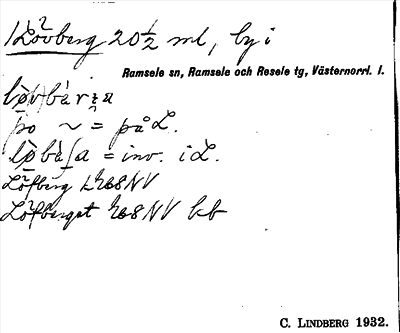 Lövberg 20½ ml, by i
Ramsele sn, Ramsele och Resele tg, Västernorrl. l.
på ~ = på L.
= inv. i L.
Löfberg 68NV
Löfberget 68NV kb
C. LINDBERG 1932.